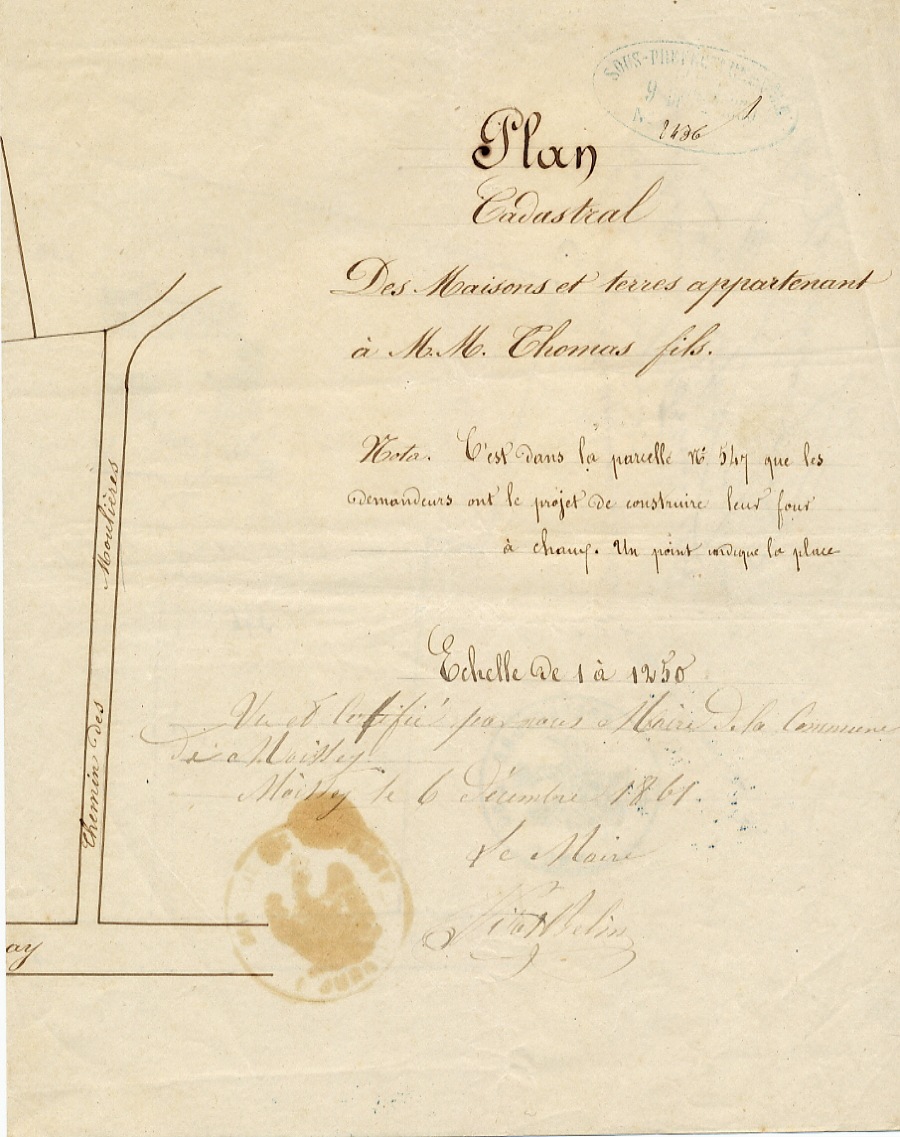 SOUS-PRÉFECTURE
9
2436
Plan
Cadastral
Des Maisons et terres appartenant
à M.M. Thomas fils.
Nota. C'est dans la parcelle N° 547 que les
demandeurs ont le projet de construire leur four
à chaux. Un point indique la place
Echelle de 1 à 1250
Vu et Certifié par nous Maire de la Commune
de Moissey
Moissey le 6 Décembre 1861.
Le Maire
Chemin des Moulières
ay
JURA